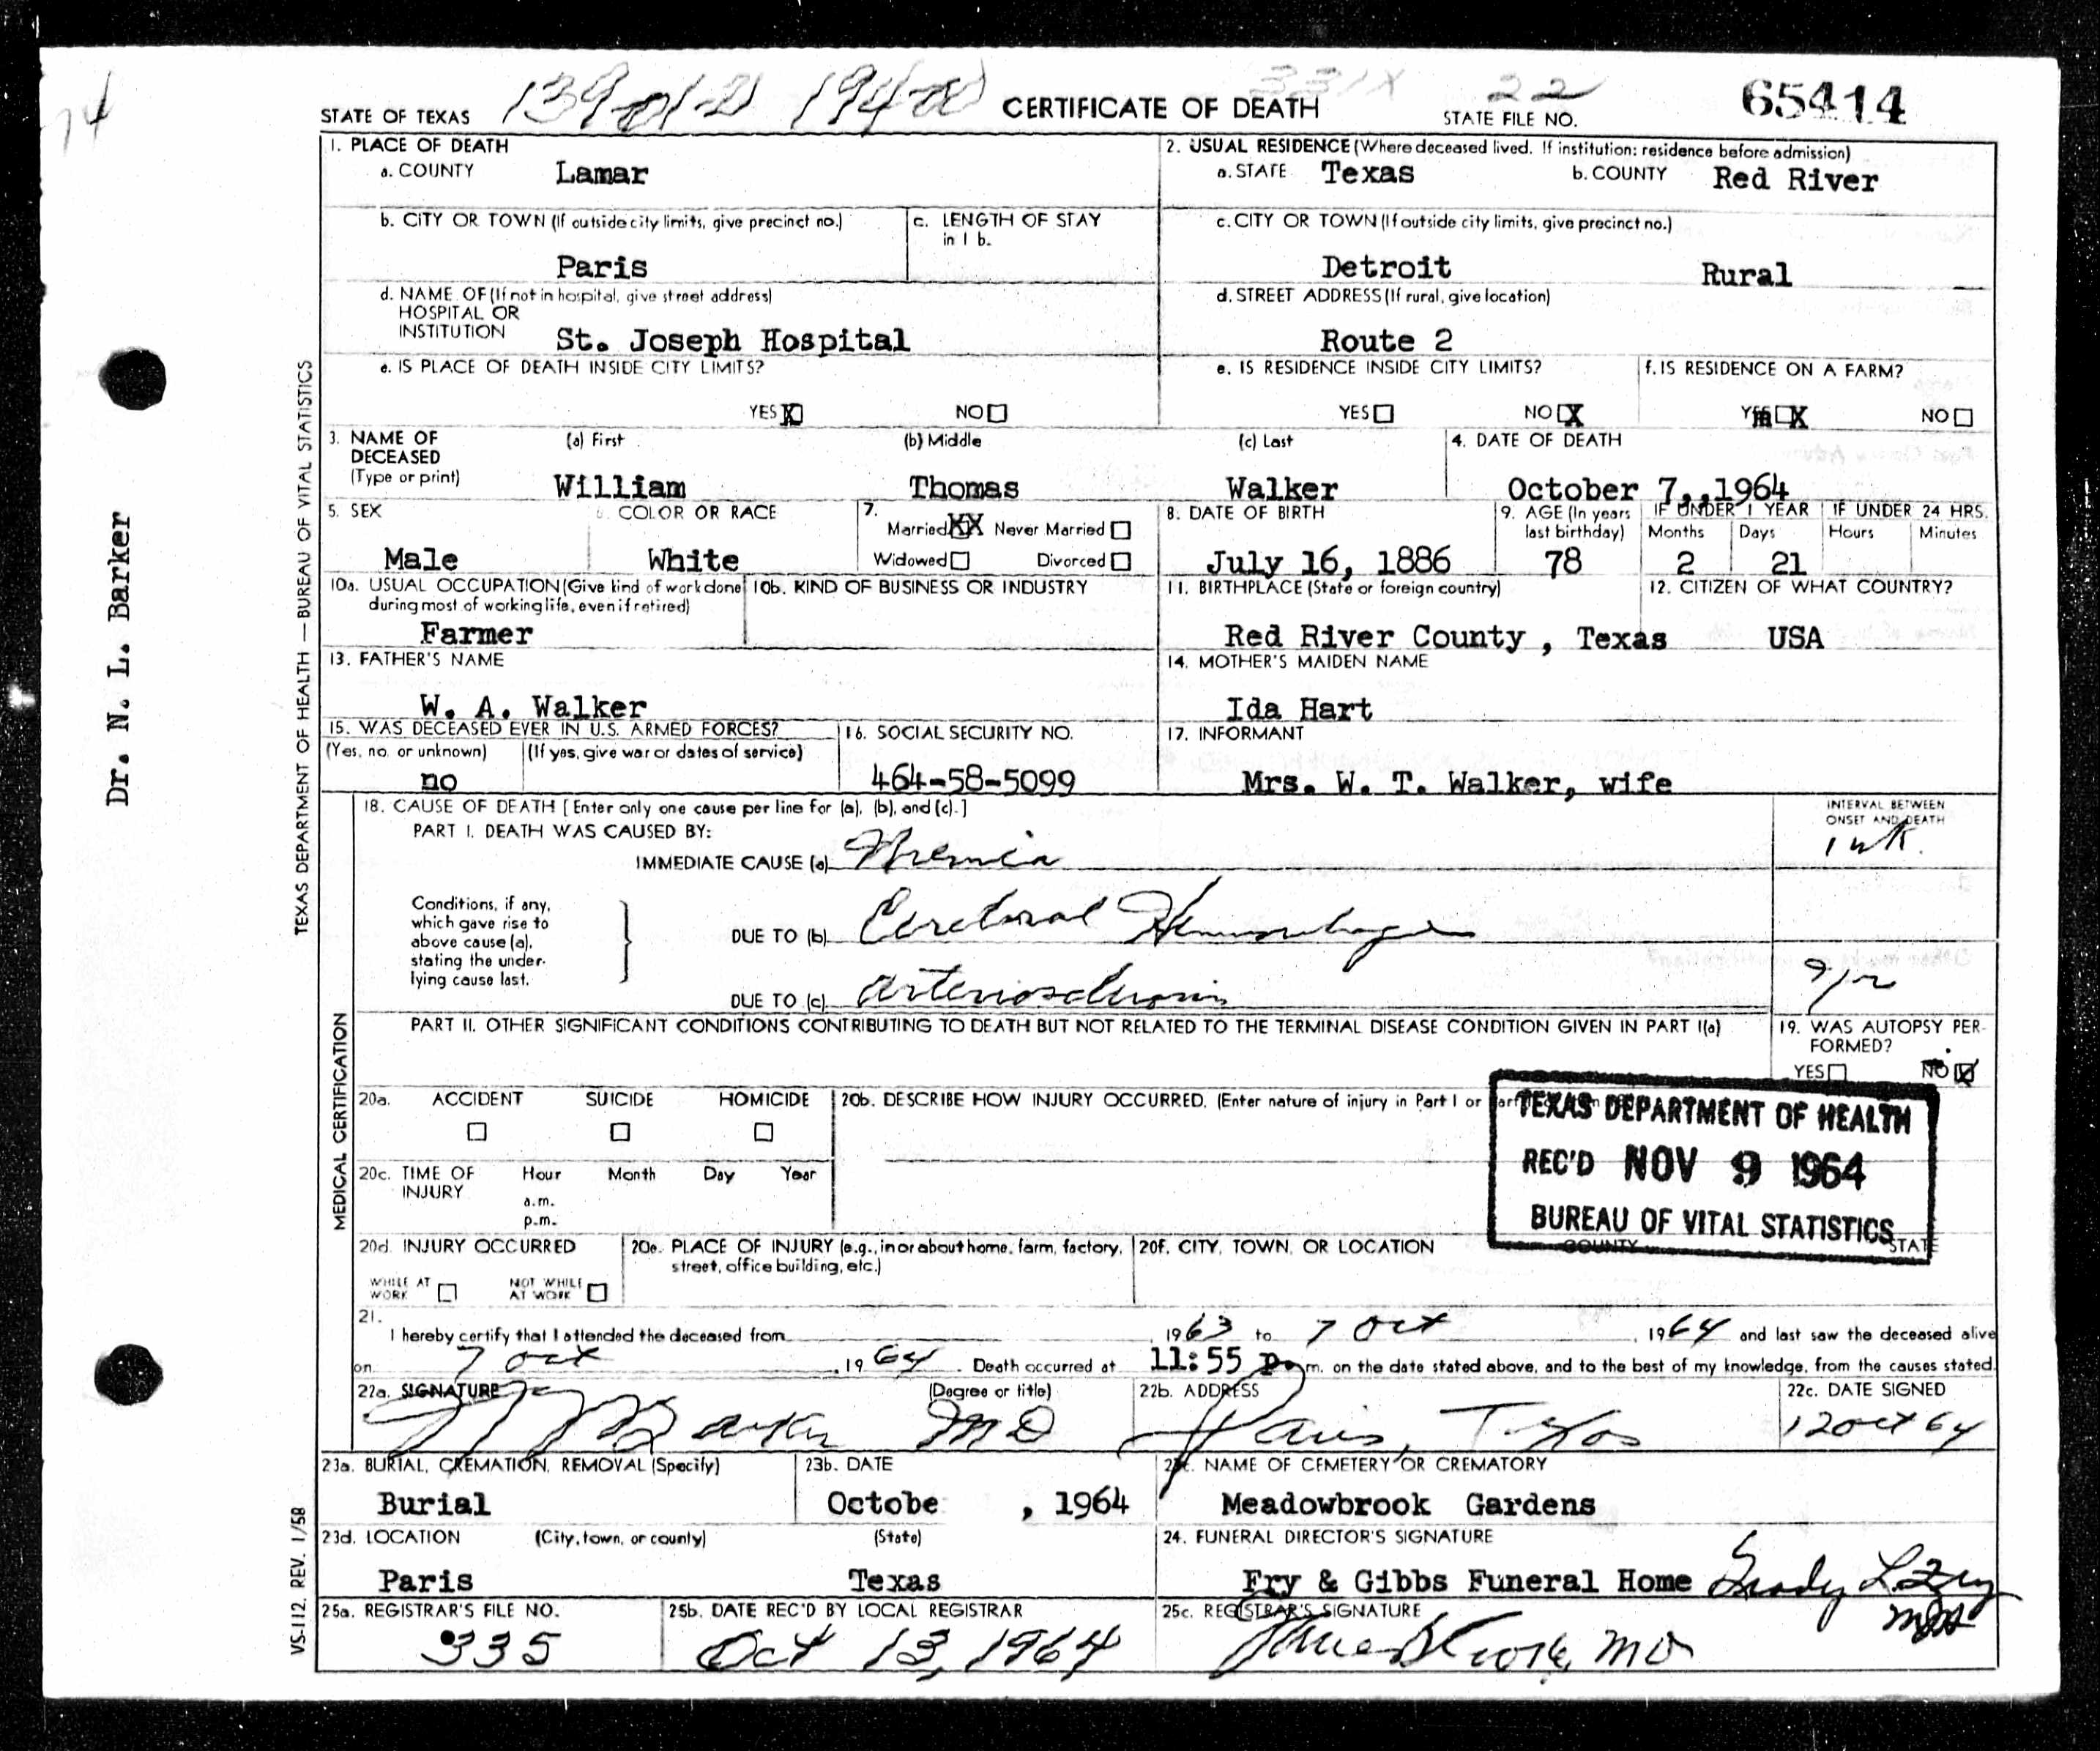 74
STATE OF TEXAS CERTIFICATE OF DEATH 331X STATE FILE NO. 22 65414
1. PLACE OF DEATH
a. COUNTY Lamar
2. USUAL RESIDENCE (Where deceased lived. If institution: residence before admission)
a. STATE Texas b. COUNTY Red River
b. CITY OR TOWN (If outside city limits, give precinct no.)
Paris
c. LENGTH OF STAY in 1 b.
c. CITY OR TOWN (If outside city limits, give precinct no.)
Detroit Rural
d. NAME OF (If not in hospital, give street address)
HOSPITAL OR
INSTITUTION St. Joseph Hospital
d. STREET ADDRESS (If rural, give location)
Route 2
e. IS PLACE OF DEATH INSIDE CITY LIMITS?
YES X NO
e. IS RESIDENCE INSIDE CITY LIMITS?
YES NO X
f. IS RESIDENCE ON A FARM?
YES X NO
3. NAME OF DECEASED (Type or print)
(a) First (b) Middle (c) Last
William Thomas Walker
4. DATE OF DEATH
October 7, ,1964
5. SEX
Male
6. COLOR OR RACE
White
7. Married XX Never Married
Widowed Divorced
8. DATE OF BIRTH
July 16, 1886
9. AGE (In years last birthday)
78
IF UNDER 1 YEAR
Months Days
2 21
IF UNDER 24 HRS.
Hours Minutes
10a. USUAL OCCUPATION (Give kind of work done during most of working life, even if retired)
Farmer
10b. KIND OF BUSINESS OR INDUSTRY
11. BIRTHPLACE (State or foreign country)
Red River County , Texas
12. CITIZEN OF WHAT COUNTRY?
USA
13. FATHER'S NAME
W. A. Walker
14. MOTHER'S MAIDEN NAME
Ida Hart
15. WAS DECEASED EVER IN U.S. ARMED FORCES?
(Yes, no, or unknown) (If yes, give war or dates of service)
no
16. SOCIAL SECURITY NO.
464-58-5099
17. INFORMANT
Mrs. W. T. Walker, wife
18. CAUSE OF DEATH [Enter only one cause per line for (a), (b), and (c).]
INTERVAL BETWEEN ONSET AND DEATH
PART I. DEATH WAS CAUSED BY:
IMMEDIATE CAUSE (a) Uremia 1 wk.
Conditions, if any, which gave rise to above cause (a), stating the underlying cause last.
DUE TO (b) Cerebral Hemorrhage
DUE TO (c) Arteriosclerosis
PART II. OTHER SIGNIFICANT CONDITIONS CONTRIBUTING TO DEATH BUT NOT RELATED TO THE TERMINAL DISEASE CONDITION GIVEN IN PART I(a)
19. WAS AUTOPSY PERFORMED?
YES NO X
20a. ACCIDENT SUICIDE HOMICIDE
20b. DESCRIBE HOW INJURY OCCURRED. (Enter nature of injury in Part I or Part
TEXAS DEPARTMENT OF HEALTH
REC'D NOV 9 1964
BUREAU OF VITAL STATISTICS
20c. TIME OF INJURY Hour Month Day Year
a.m.
p.m.
20d. INJURY OCCURRED
WHILE AT WORK NOT WHILE AT WORK
20e. PLACE OF INJURY (e.g., in or about home, farm, factory, street, office building, etc.)
20f. CITY, TOWN, OR LOCATION COUNTY STATE
21.
I hereby certify that I attended the deceased from 1963 to 7 Oct , 1964 and last saw the deceased alive
on 7 Oct , 1964 . Death occurred at 11:55 p.m. on the date stated above, and to the best of my knowledge, from the causes stated.
22a. SIGNATURE (Degree or title)
N L Barker MD
22b. ADDRESS
Paris, Texas
22c. DATE SIGNED
12 Oct 64
23a. BURIAL, CREMATION, REMOVAL (Specify)
Burial
23b. DATE
Octobe , 1964
23c. NAME OF CEMETERY OR CREMATORY
Meadowbrook Gardens
23d. LOCATION (City, town, or county) (State)
Paris Texas
24. FUNERAL DIRECTOR'S SIGNATURE
Fry & Gibbs Funeral Home Grady L. Fry
25a. REGISTRAR'S FILE NO.
335
25b. DATE REC'D BY LOCAL REGISTRAR
Oct 13, 1964
25c. REGISTRAR'S SIGNATURE
MD
TEXAS DEPARTMENT OF HEALTH — BUREAU OF VITAL STATISTICS
MEDICAL CERTIFICATION
VS-112 REV. 1/58
Dr. N. L. Barker